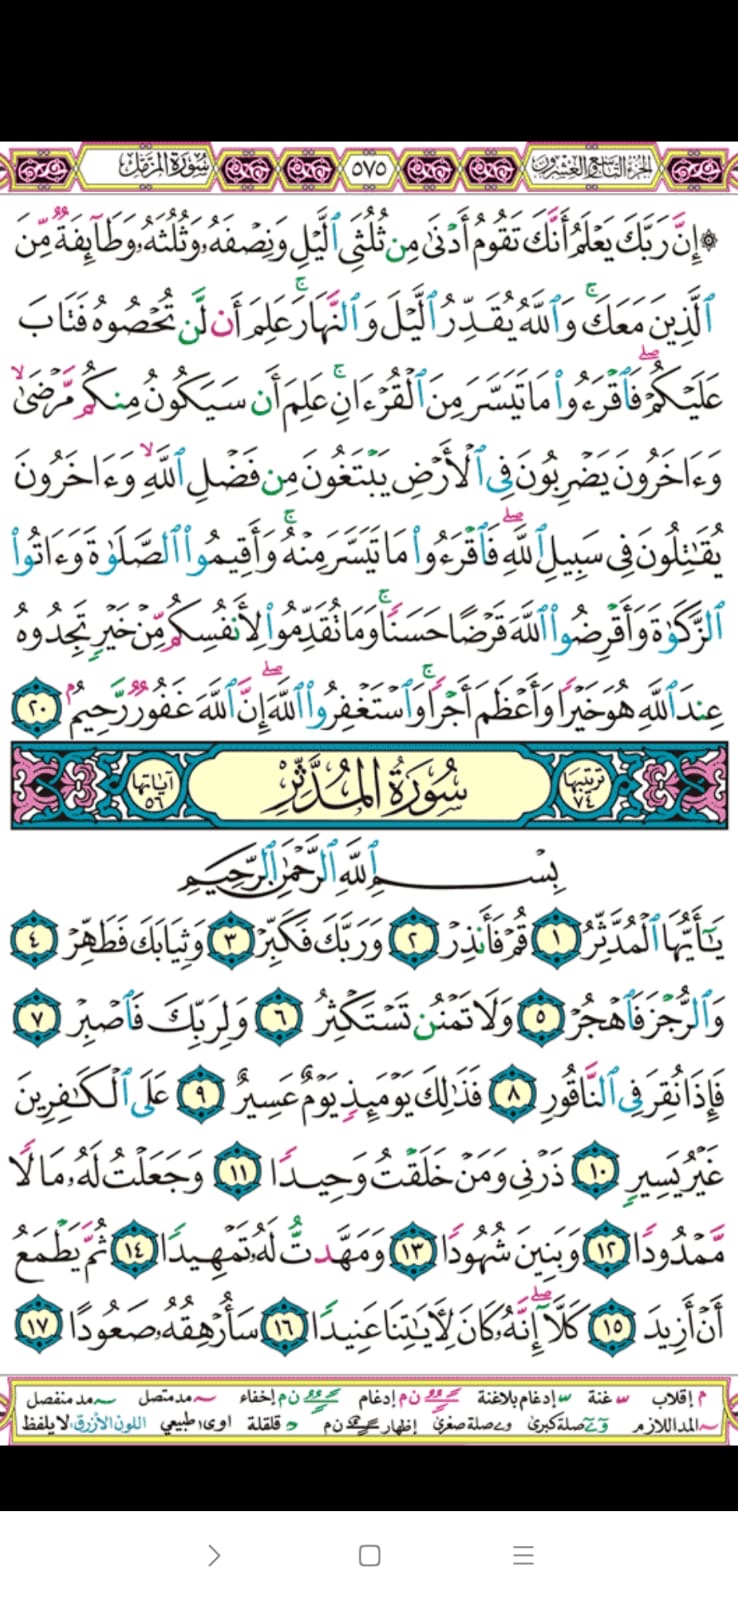 الجزء التاسع والعشرون ٥٧٥ سورة المزمل
۞ إِنَّ رَبَّكَ يَعْلَمُ أَنَّكَ تَقُومُ أَدْنَىٰ مِن ثُلُثَىِ ٱلَّيْلِ وَنِصْفَهُۥ وَثُلُثَهُۥ وَطَآئِفَةٌ مِّنَ
ٱلَّذِينَ مَعَكَ ۚ وَٱللَّهُ يُقَدِّرُ ٱلَّيْلَ وَٱلنَّهَارَ ۚ عَلِمَ أَن لَّن تُحْصُوهُ فَتَابَ
عَلَيْكُمْ ۖ فَٱقْرَءُوا۟ مَا تَيَسَّرَ مِنَ ٱلْقُرْءَانِ ۚ عَلِمَ أَن سَيَكُونُ مِنكُم مَّرْضَىٰ ۙ
وَءَاخَرُونَ يَضْرِبُونَ فِى ٱلْأَرْضِ يَبْتَغُونَ مِن فَضْلِ ٱللَّهِ ۙ وَءَاخَرُونَ
يُقَـٰتِلُونَ فِى سَبِيلِ ٱللَّهِ ۖ فَٱقْرَءُوا۟ مَا تَيَسَّرَ مِنْهُ ۚ وَأَقِيمُوا۟ ٱلصَّلَوٰةَ وَءَاتُوا۟
ٱلزَّكَوٰةَ وَأَقْرِضُوا۟ ٱللَّهَ قَرْضًا حَسَنًا ۚ وَمَا تُقَدِّمُوا۟ لِأَنفُسِكُم مِّنْ خَيْرٍ تَجِدُوهُ
عِندَ ٱللَّهِ هُوَ خَيْرًا وَأَعْظَمَ أَجْرًا ۚ وَٱسْتَغْفِرُوا۟ ٱللَّهَ ۖ إِنَّ ٱللَّهَ غَفُورٌ رَّحِيمٌۢ ٢٠
ترتيبها ٧٤ سُورَةُ المُدَّثِّر آياتها ٥٦
بِسْمِ ٱللَّهِ ٱلرَّحْمَـٰنِ ٱلرَّحِيمِ
يَـٰٓأَيُّهَا ٱلْمُدَّثِّرُ ١ قُمْ فَأَنذِرْ ٢ وَرَبَّكَ فَكَبِّرْ ٣ وَثِيَابَكَ فَطَهِّرْ ٤
وَٱلرُّجْزَ فَٱهْجُرْ ٥ وَلَا تَمْنُن تَسْتَكْثِرُ ٦ وَلِرَبِّكَ فَٱصْبِرْ ٧
فَإِذَا نُقِرَ فِى ٱلنَّاقُورِ ٨ فَذَٰلِكَ يَوْمَئِذٍ يَوْمٌ عَسِيرٌ ٩ عَلَى ٱلْكَـٰفِرِينَ
غَيْرُ يَسِيرٍ ١٠ ذَرْنِى وَمَنْ خَلَقْتُ وَحِيدًا ١١ وَجَعَلْتُ لَهُۥ مَالًا
مَّمْدُودًا ١٢ وَبَنِينَ شُهُودًا ١٣ وَمَهَّدتُّ لَهُۥ تَمْهِيدًا ١٤ ثُمَّ يَطْمَعُ
أَنْ أَزِيدَ ١٥ كَلَّآ ۖ إِنَّهُۥ كَانَ لِـَٔايَـٰتِنَا عَنِيدًا ١٦ سَأُرْهِقُهُۥ صَعُودًا ١٧
م إقلاب غنة إدغام بلاغنة ن م إدغام ن م إخفاء مد متصل مد منفصل
المد اللازم صلة كبرى صلة صغرى إظهار ن م قلقلة اوى طبيعي اللون الأزرق لا يلفظ